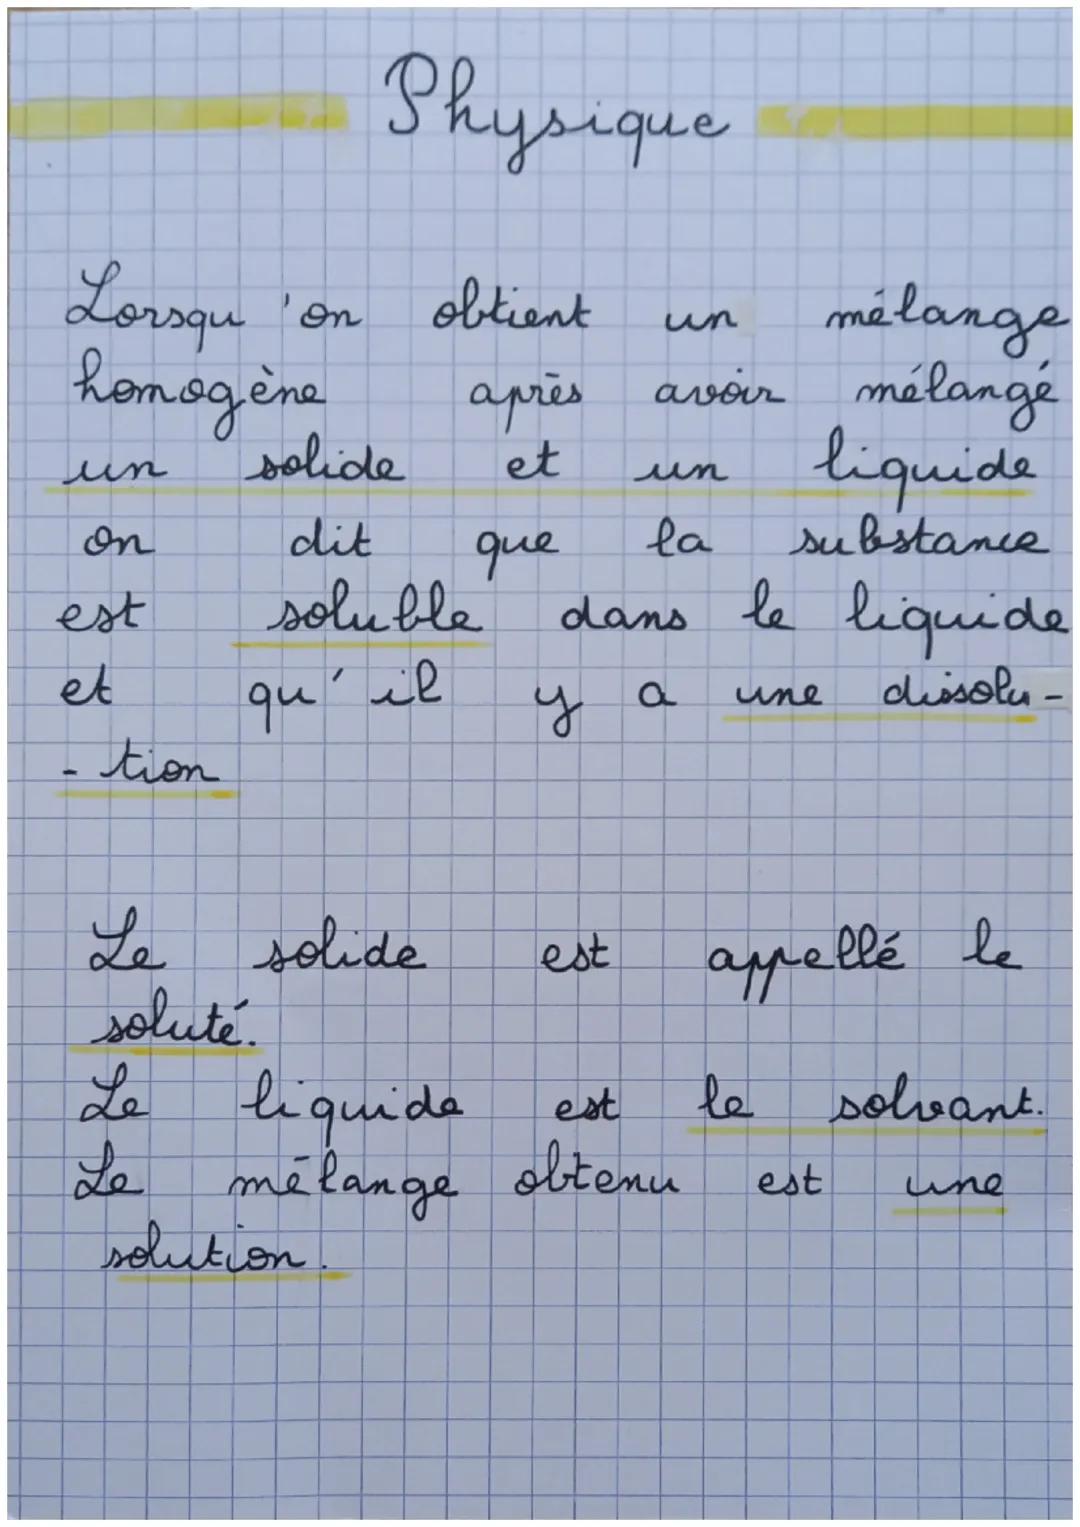 Physique
Lorsqu'on obtient un mélange
homogène après avoir mélangé
un solide et un liquide
on dit que la substance
est soluble dans le liquide
et qu'il y a une dissolu-
- tion
Le solide est appellé le
soluté.
Le liquide est le solvant.
Le mélange obtenu est une
solution.